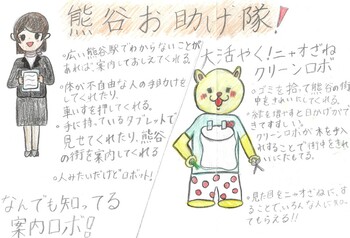 熊谷お助け隊!
・広い熊谷駅でわからないことが
あれば、案内しておしえてくれる。
・体が不自由な人の手助けを
してくれたり、
車いすを押してくれる。
・手に持っているタブレットで
見せてくれたり、熊谷
の街を案内してくれる
・人みたいだけどロボット!
なんでも知ってる
案内ロボ!!
大活やく!ニャオざね
クリーンロボ
・ゴミを拾って熊谷の街
中をきれいにしてくれる。
できますすしい。
クリーンロボが木を
入れることで街中をきれ
いにしたてる。
・見た目をニャオざねに、す
ることで、いろんな人に知っ
てもらえる!!